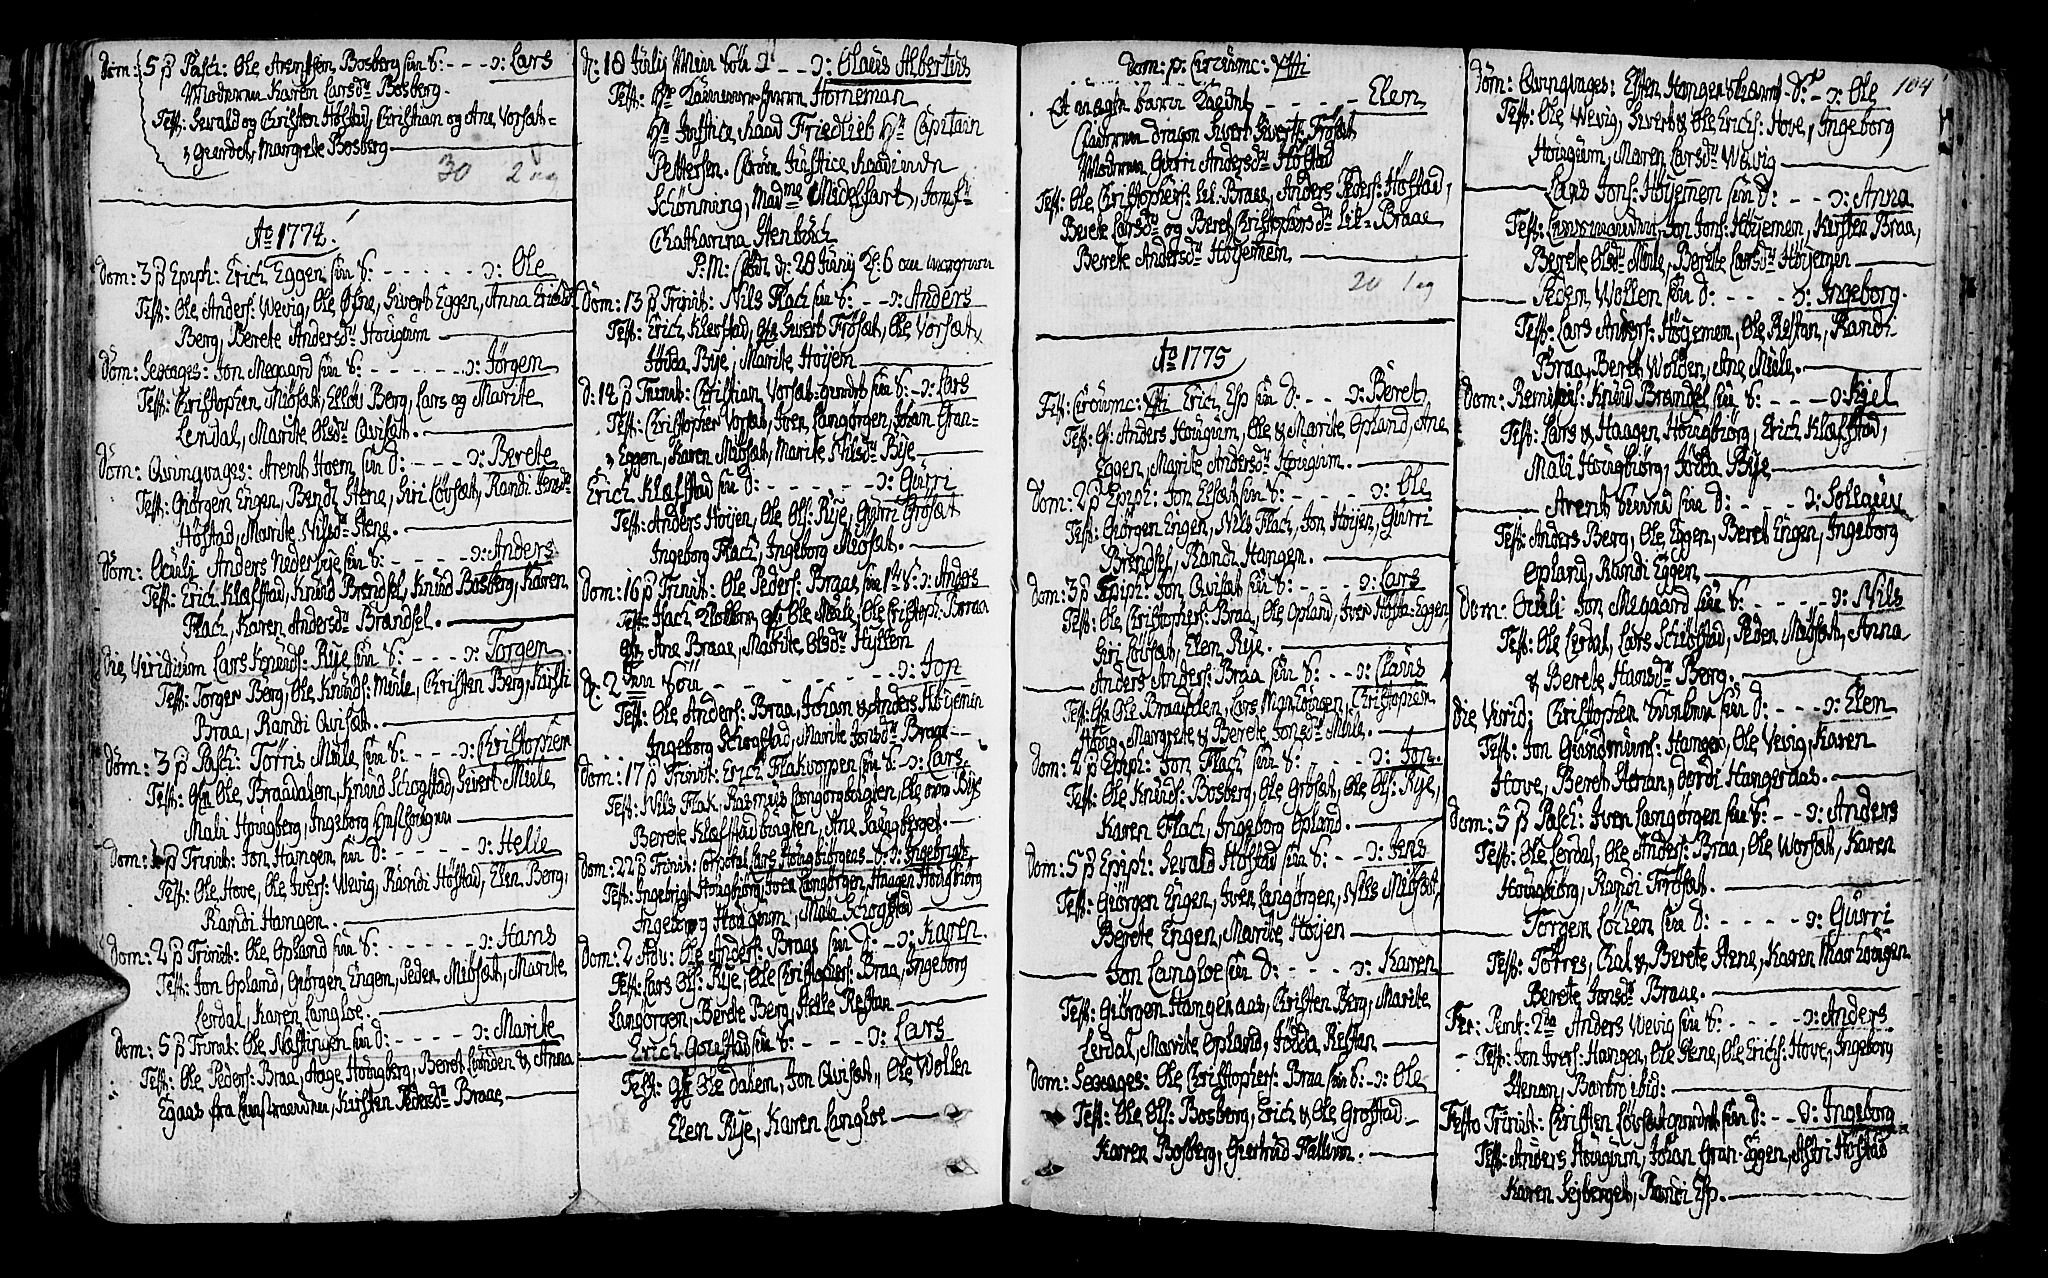 Dom: 5 p Pasch: Ole Arentsen Bosberg sin S: - - - ɔ: Lars
Moderen Karen Larsdr Bosberg.
Test: Sevald og Christen Höfstad, Christian og Ane Vorsæt=
Gierdet, Margrete Bosberg
30 2
Ao 1774.
Dom: 3 p Epiph: Erich Eggen sin S: - - - ɔ: Ole
Test: Ole Anders: Wevig, Ole Øfne, Sivert Eggen, Anna Erichsdr
Berg, Berete Andersdr Hougum
Dom: Sexages: Jon Megaard sin S: - - - ɔ: Jörgen
Test: Christophen Miösat, Ellöv Berg, Lars og Marite
Lerdal, Marite Olsdr Qvisat.
Dom: Qvingvages: Arent Hoem sin D: - - - ɔ: Berete
Test: Giörgen Engen, Bendt Stene, Siri Lövsæt, Randi
Höstad, Marite Nilsdr Stene.
Dom: Oculi Anders Nederbye sin S: - - - ɔ: Anders
Test: Erich Klefstad, Knud Brendsel, Knud Bosberg, Karen
Flach, Karen Andersdr Brandsel.
Die Viridium Lars Knuds: Rye sin S: - - - ɔ: Torgen
Test: Torger Berg, Ole Knuds: Mule, Christen Berg, Kirsti
Braa, Randi Qvisat.
Dom: 3 p Pasch: Törris Mule sin S: - - - ɔ: Christophen
Test: Ole Braadalen, Knud Schogstad, Sivert Mule
Mali Hougberg, Ingeborg
Dom: 1 p Trinit: Jon Hangen sin D: - - - ɔ: Helle
Test: Ole Hove, Ole Ivers: Wevig, Randi Höstad, Elen Berg,
Randi Hangen.
Dom: 2 p Trinit: Ole Opland sin S: - - - ɔ: Hans
Test: Jon Opland, Giörgen Engen, Peder Miösat, Marite
Lerdal, Karen Langloe.
Dom: 5 p Trinit: Ole Nöstingen sin D: - - - ɔ: Marite
Test: Ole Peders: Braa, Aage Hougberg, Beret & Anna
Egaas fra, Kirsten Pedersdr Braae
d: 18 Julij Min Sön - - ɔ: Olaus Albertus
Test: Hr Kammerherre Horneman
Hr Justice Raad Friedlieb Hr Capitain
Pettersen. Justice Raadinde
Schönning, Madme Midelfart, Jomfr
Chatharina Stenbuch
P.M: d: 28 Junij Kl: 6 om morgenen
Dom: 13 p Trinit: Nils Flach sin S: - - ɔ: Anders
Test: Erich Klefstad, Sivert Frösæt, Ole Vorsæt
Jödda Bye, Marite Hoyem
D: 14 p Trinit: Christian Vorsæt-gierdet sin S: - ɔ: Lars
Test: Christopher Vorsæt, Iver Langörgen, Johan Gran=
Eggen, Karen Miösat, Marite Nilsdr Bye
Erich Klefstad sin D: - - - ɔ: Gurri
Test: Anders Hoyen, Ole Ols: Rye, Gurri Grösat
Ingeborg Flach, Ingeborg Miösat.
Dom: 16 p Trinit: Ole Peders: Braae, sin S: ɔ: Anders
Test: Ole Mule, Ole Christoph: Braa
Ane Braae, Marite Olsdr
d: 2 Sön - - - ɔ: Jon
Test: Ole Anders: Braa, Johan & Anders Höyemen
Ingeborg Schogstad, Marite Jonsdr Braae
Dom: 17 p Trinit: Erich Flakvorpen sin S: ɔ: Lars
Test: Nils Flak, Rasmus, Ole Bye
Berete, Ane
Dom: 22 p Trinit: Lars Hougbiörgens S: ɔ: Ingebrigt
Test: Ingebrigt Hougbiörg, Iver Langörgen, Haagen Hougbiörg
Ingeborg Hougum, Mali Schogstad
Dom: 2 Adv: Ole Anders: Braae sin D: - ɔ: Karen.
Test: Lars Ols: Rye, Ole Christophers: Braa, Ingeborg
Langörgen, Berete Berg, Helle Restan
Erich Grostad sin S: - - - ɔ: Lars
Test: Ole Dalem, Jon Qvisat, Ole Wollen
Elen Rye, Karen Langloe
Dom: p: Circumc: Xsti
Et uægte barn - - - Elen
dragon Sivert Siverts: Frösæt
Moderen Gurri Andersdr Höstad
Test: Ole Christophers: Lil-Braae, Anders Peders: Höstad,
Berete Larsdr og Beret Christophersdr Lil-Braae
Berete Andersdr Höyemem
20
Ao 1775
Fest: Circumc: Xsti Erich Esp sin D: - - ɔ: Beret
Test: Anders Hougum, Ole & Marite Opland, Ane
Eggen, Marite Andersdr Hougum.
Dom: 2 p Epiph: Jon Elsæt sin S: - - - ɔ: Ole
Test: Giörgen Engen, Nils Flach, Jon Hoyen, Gurri
Brendsel, Randi Hangen.
Dom: 3 p Epiph: Jon Qvisat sin S: - - - ɔ: Lars
Test: Ole Christophers: Braa, Ole Opland, Iver Eggen,
Siri Lövsæt, Elen Rye.
Anders Anders: Braa sin S: - - ɔ: Claus
Test: Ole Braadalen, Lars, Christophen
Haug, Margrete & Berete Jonsdr Mule.
Dom: 2 p Epiph: Jon Flach sin S: - - ɔ: Jon.
Test: Ole Knuds: Bosberg, Ole Grösat, Ole Ols: Rye,
Karen Flach, Ingeborg Opland.
Dom: 5 p Epiph: Sevald Höstad sin S: - - ɔ: Jens
Test: Giörgen Engen, Iver Langörgen, Nils Miösat,
Berete Engen, Marite Hoyen
Jon Langloe sin D: - - - ɔ: Karen
Test: Giörgen Hangeraas, Christen Berg, Marite
Lerdal, Marite Opland, Jödda Restan
Dom: Sexages: Ole Christophers: Braa sin S: - ɔ: Ole
Test: Ole Ols: Bosberg, Erich & Ole Grostad
Karen Bosberg, Giertrud
Dom: Qvingvages: Esten Hangerskaaret S: - ɔ: Ole 104
Test: Ole Wevig, Sivert & Ole Erichs: Hove, Ingeborg
Hougum, Maren Larsdr Wevig
Lars Jons: Höyemen sin D: - - ɔ: Anna
Test:, Jon Jons: Höyemen, Kersten Braa,
Berete Olsdr Mule, Berete Larsdr Höyemen
Peder Wollen sin D: - - - ɔ: Ingeborg.
Test: Lars Anders: Höyemen, Ole Restan, Randi
Braa, Beret Wolden, Ane Mule.
Dom: Reminis: Knud Brandsel sin S: - - - ɔ: Kiel
Test: Lars & Haagen Hougbiörg, Erich Klefstad,
Mali Hougbiörg, Jödda Bye
Arent sin D: - - - ɔ: Sollaug
Test: Anders Berg, Ole Eggen, Beret Engen, Ingeborg
Opland, Randi Eggen
Dom: Oculi Jon Megaard sin S: - - - ɔ: Nils
Test: Ole Lerdal, Lars Schiöstad, Peder Miösat, Anna
& Berete Hansdr Berg.
Die Virid: Christophen sin D: - - - ɔ: Elen
Test: Jon Gundmuns: Hanger, Ole Vevig, Karen
Hove, Beret, Dordi Hangeraas.
Dom: 5 p Pasch: Iver Langörgen sin S: - - ɔ: Anders
Test: Ole Lerdal, Ole Anders: Braa, Ole Worsæt, Karen
Hougbiörg, Randi Frösæt.
Torgen Löchen sin D: - - - ɔ: Gurri
Test: Törres, & Berete Stene, Karen
Berete Jonsdr Braae.
Fer: Pent: 2da Anders Wevig sin S: - - - ɔ: Anders
Test: Jon Ivers: Hangen, Ole Stene, Ole Erichs: Hove, Ingeborg
Stenan, Barbro ibid:
Festo Trinit: Christen Lövsætgierdet sin D: - - ɔ: Ingeborg
Test: Anders Hougum, Johan Gran-Eggen, Astri Höstad
Karen Sejberget, Randi Esp.